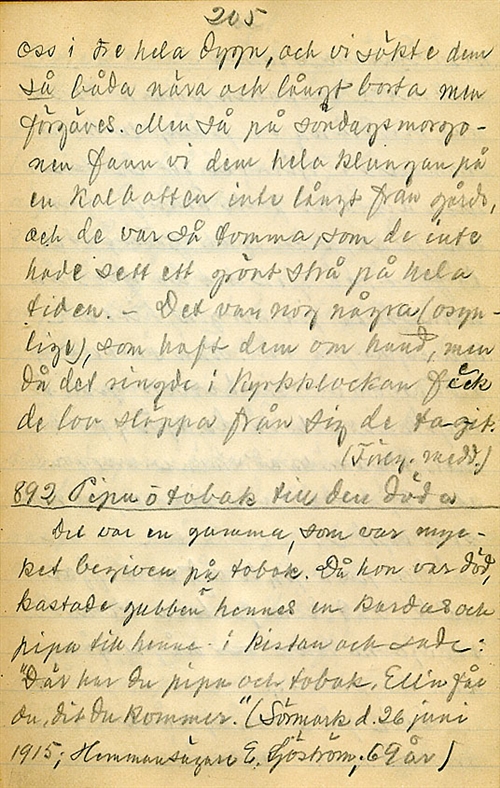 205
oss i tre hela dygn, och vi sökte dem
så båda nära och långt borta men
förgäves. Men så på söndagsmorgo-
nen fann vi dem hela klungan på
en kolbotten inte långt från gårds,
och de var så tomma, som de inte
hade sett ett grönt strå på hela
tiden. – Det var nog några (osyn-
lige), som haft dem om hand, men
då det ringde i kyrkklockan feck
de lov släppa från sig de tagit.
(Föreg. medd.)
892 Pipa ö tobak till den döda
Det var en gumma, som var myc-
ket begiven på tobak. Då hon var död,
kastade gubben hennes en kardus och
pipa till henne i kistan och sade:
"Där har du pipa och tobak, Eld'n får
du, dit du kommer." (Sörmark d. 26 juni
1915; Hemmansägare E. Sjöström, 69 år)